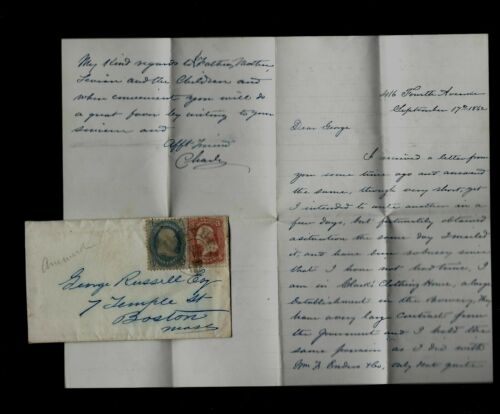 My kind regards to Father, Mother,
and the Children and
when convenient you will do
a great favor by writing to your
sincere and
Afft Friend
Charles
416 Fourth Avenue
September 17th 1862
Dear George
I received a letter from
you some time ago and answered
the same, though very short, yet
I intended to write another in a
few days, but fortunately obtained
a situation the same day I mailed
it, and have been so busy since
that I have not had time. I
am in Clothing House, a large
establishment in the Bowery. They
have a very large contract from
the Government and I hold the
same position as I did with
Wm & Co, only not quite
George Russell Esq
7 Temple St
Boston
Mass